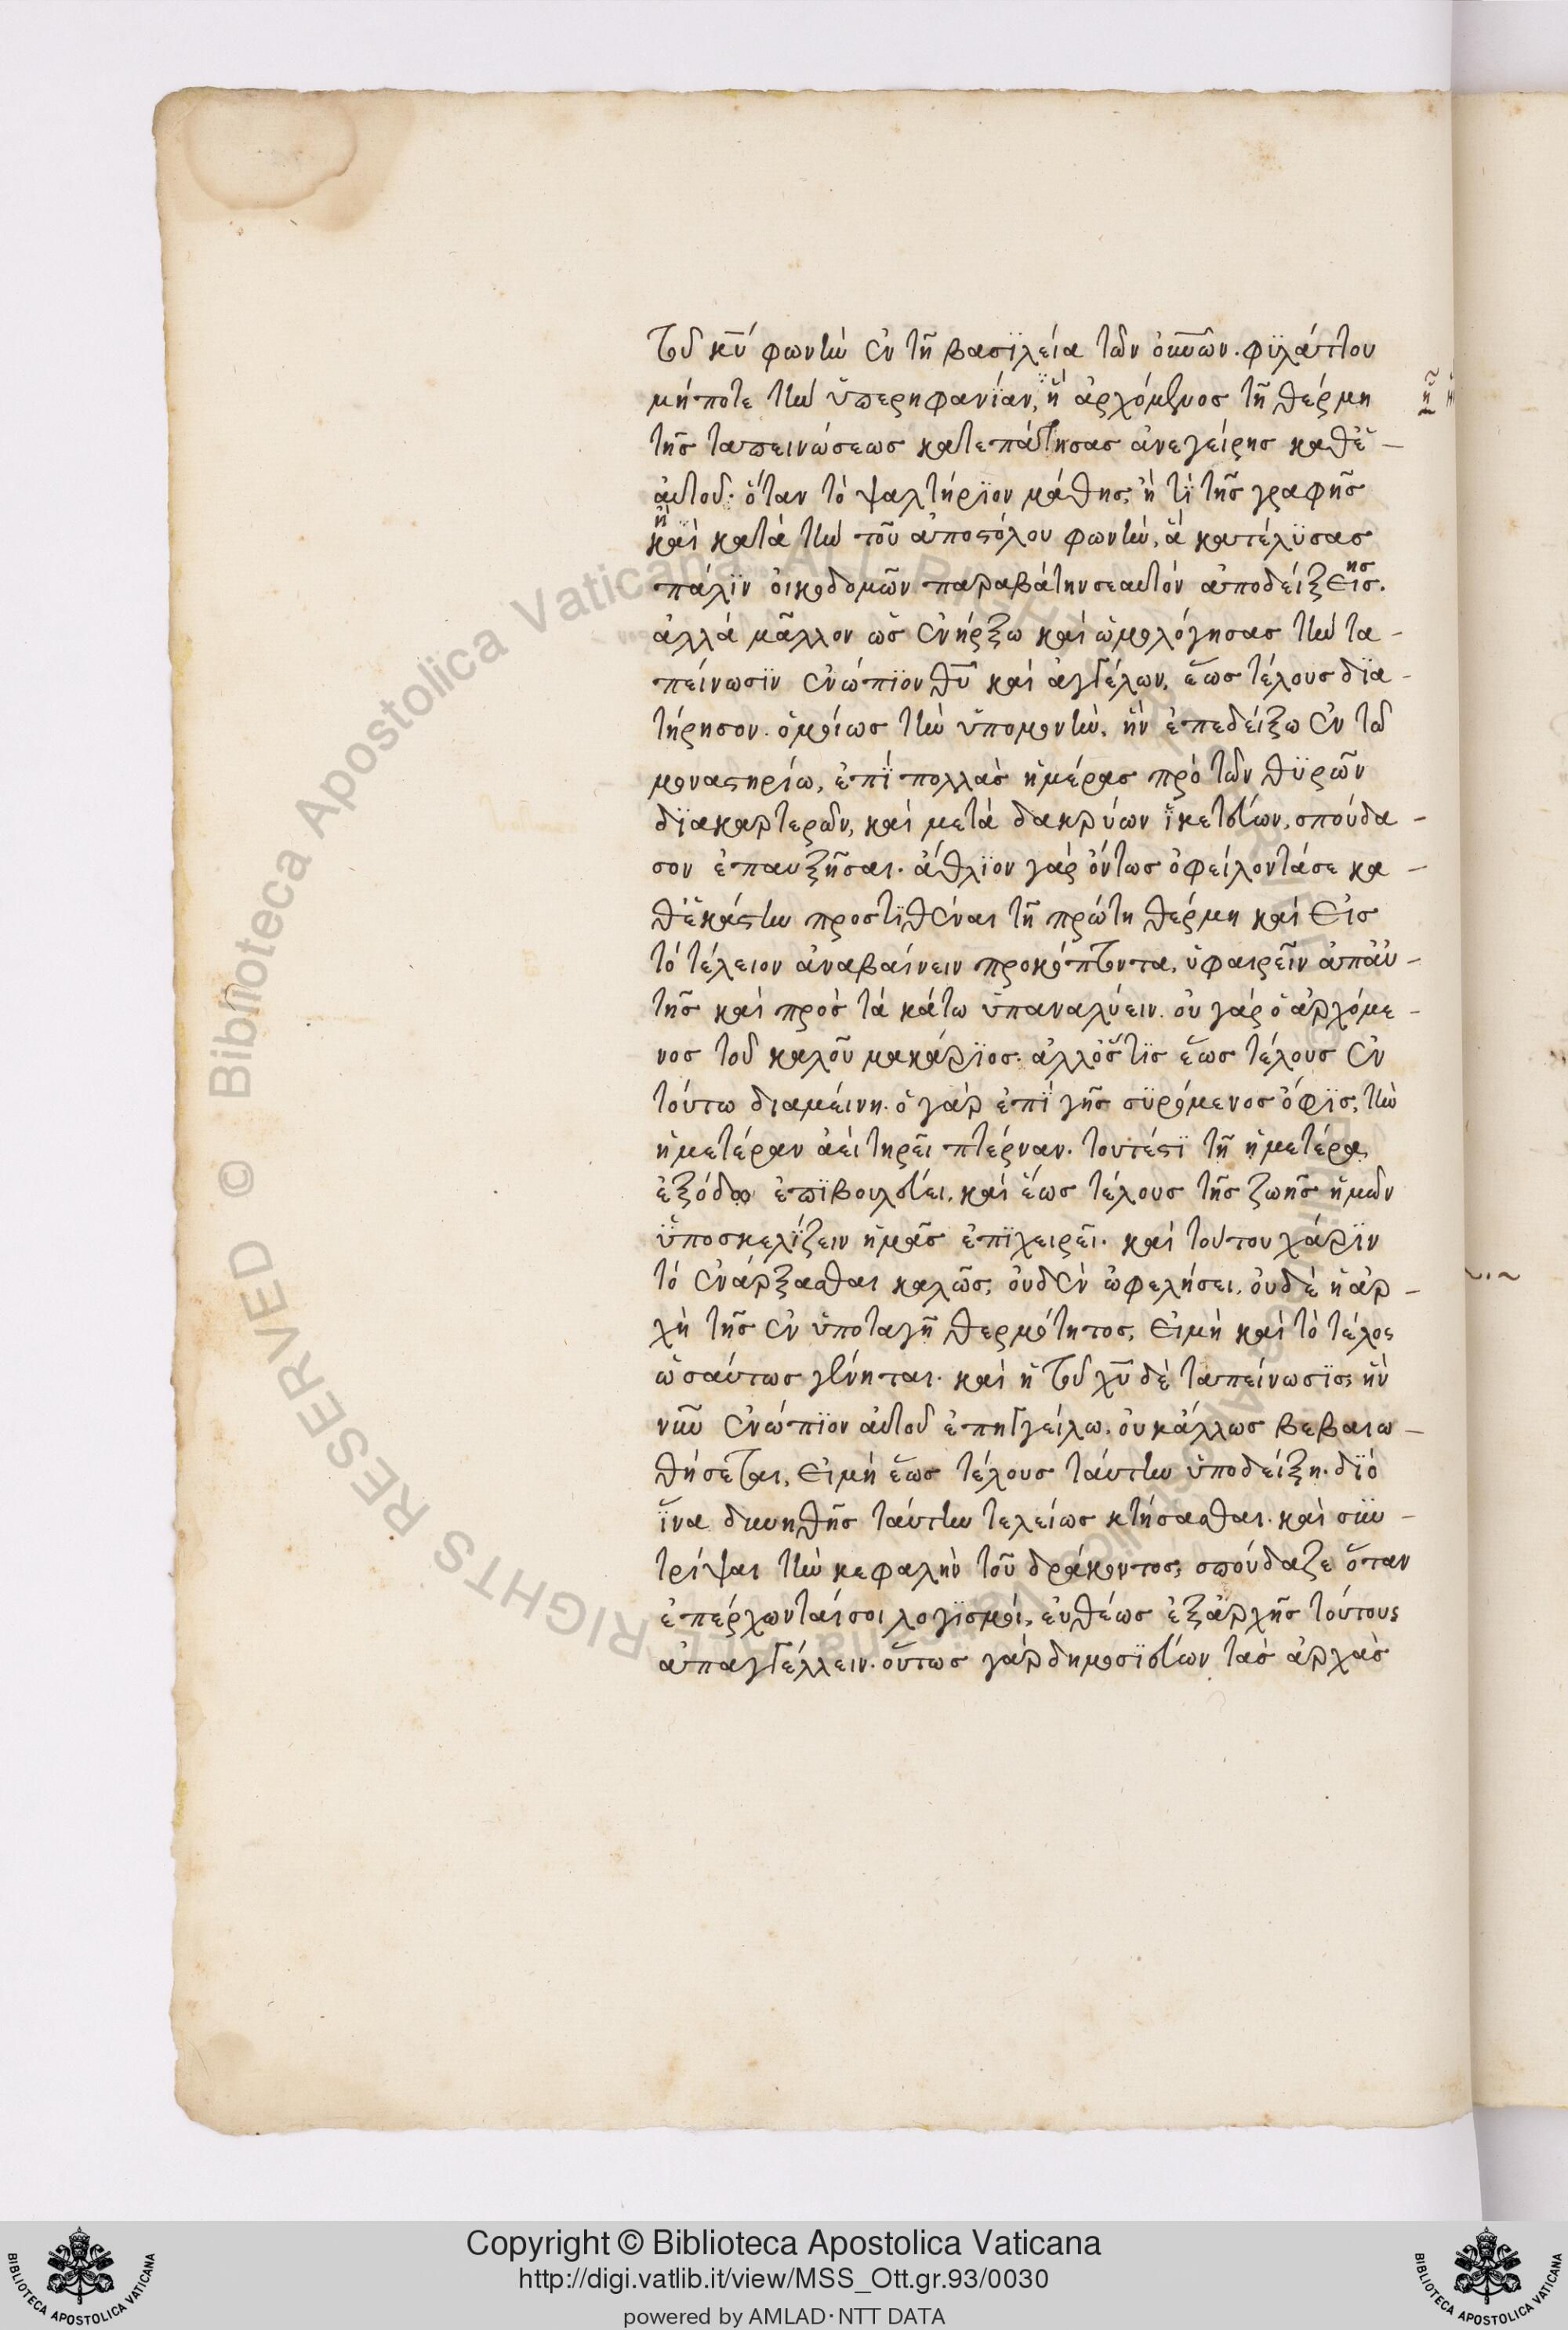 τοῦ κυ φωνὴν ἐν τῆ βασϊλεία τῶν οὐνῶν. φϋλάττου
μήποτε τὴν ὑπερηφανίαν, ἣ ἀρχόμενος τῆ θέρμη
τῆς ταπεινώσεως κατεπάτησας ἀνεγείρης καθὲ-
αυτοῦ. ὅταν τὸ ψαλτήρϊον μάθης, ἢ τϊ τῆς γραφῆς
ἢ
καὶ κατὰ τὴν τοῦ ἀποστόλου φωνὴν, ἃ κατέλϋσας
πάλϊν οἰκοδομῶν παραβάτην σεαυτόν ἀποδείξεις.
ης
ἀλλὰ μᾶλλον ὡς ἐνήρξω καὶ ὡμολόγησας τὴν τα-
πείνωσϊν ἐνώπϊον θυ καὶ ἀγγέλων, ἕως τέλους δϊα-
τήρησον. ὁμοίως τὴν ὑπομονὴν, ἣν ἐπεδείξω ἐν τῶ
μοναστηρίω, ἐπϊ πολλὰς ἡμέρας πρὸ τῶν θϋρῶν
δϊακαρτερῶν, καὶ μετὰ δακρύων ἱκετεύων, σπούδα-
σον ἐπαυξῆσαι. ἄθλϊον γάρ ὄντως ὀφείλοντάσε κα-
θἑκάστην προστϊθέναι τῆ πρώτη θέρμη καὶ εἰς
τό τέλειον ἀναβαίνειν προκόπτοντα, ὑφαιρεῖν ἀπὰυ-
τῆς καὶ πρὸς τὰ κάτω ὑπαναλύειν. οὐ γάρ ὁ ἀρχόμε-
νος τοῦ καλοῦ μακάρϊος. ἀλλὅστϊς ἕως τέλους ἐν
τούτω διαμείνη. ὁ γὰρ ἐπϊ γῆς σϋρόμενος ὄφϊς, τὴν
ἡμετέραν ἀεὶ τηρεῖ πτέρναν. τουτέστϊ τῆ ἡμετέρα
ἐξόδω ἐπϊβουλεύει, καὶ ἕως τέλους τῆς ζωῆς ἡμῶν
ὑποσκελίζειν ἡμᾶς ἐπϊχειρεῖ. καὶ τούτου χάρϊν
τό ἐνάρξασθαι καλῶς, οὐδὲν ὠφελήσει, οὐδὲ ἡ ἀρ-
χὴ τῆς ἐν ὑποταγῆ θερμότητος, εἰμὴ καὶ τὸ τέλος
ὡσαύτως γένηται. καὶ ἡ τοῦ χυ δὲ ταπείνωσϊς, ἣν
νῦν ἐνώπϊον αὐτοῦ ἐπηγγείλω, οὐκάλλως βεβαιω-
θήσεται, εἰμή ἕως τέλους ταύτην ὑποδείξη. δϊό
ἵνα δυνηθῆς ταύτην τελείως κτήσασθαι. καὶ συν-
τρίψαι τὴν κεφαλὴν τοῦ δράκοντος, σπούδαζε ὅταν
ἐπέρχωνταίσοι λογϊσμοί, εὐθέως ἐξἀρχῆς τούτους
ἀπαγγέλλειν. οὕτως γὰρ δημοσϊεύων τὰς ἀρχὰς
Copyright © Biblioteca Apostolica Vaticana
http://digi.vatlib.it/view/MSS_Ott.gr.93/0030
powered by AMLAD · NTT DATA
BIBLIOTECA APOSTOLICA VATICANA
BIBLIOTECA APOSTOLICA VATICANA
© Biblioteca Apostolica Vaticana ALL RIGHTS RESERVED